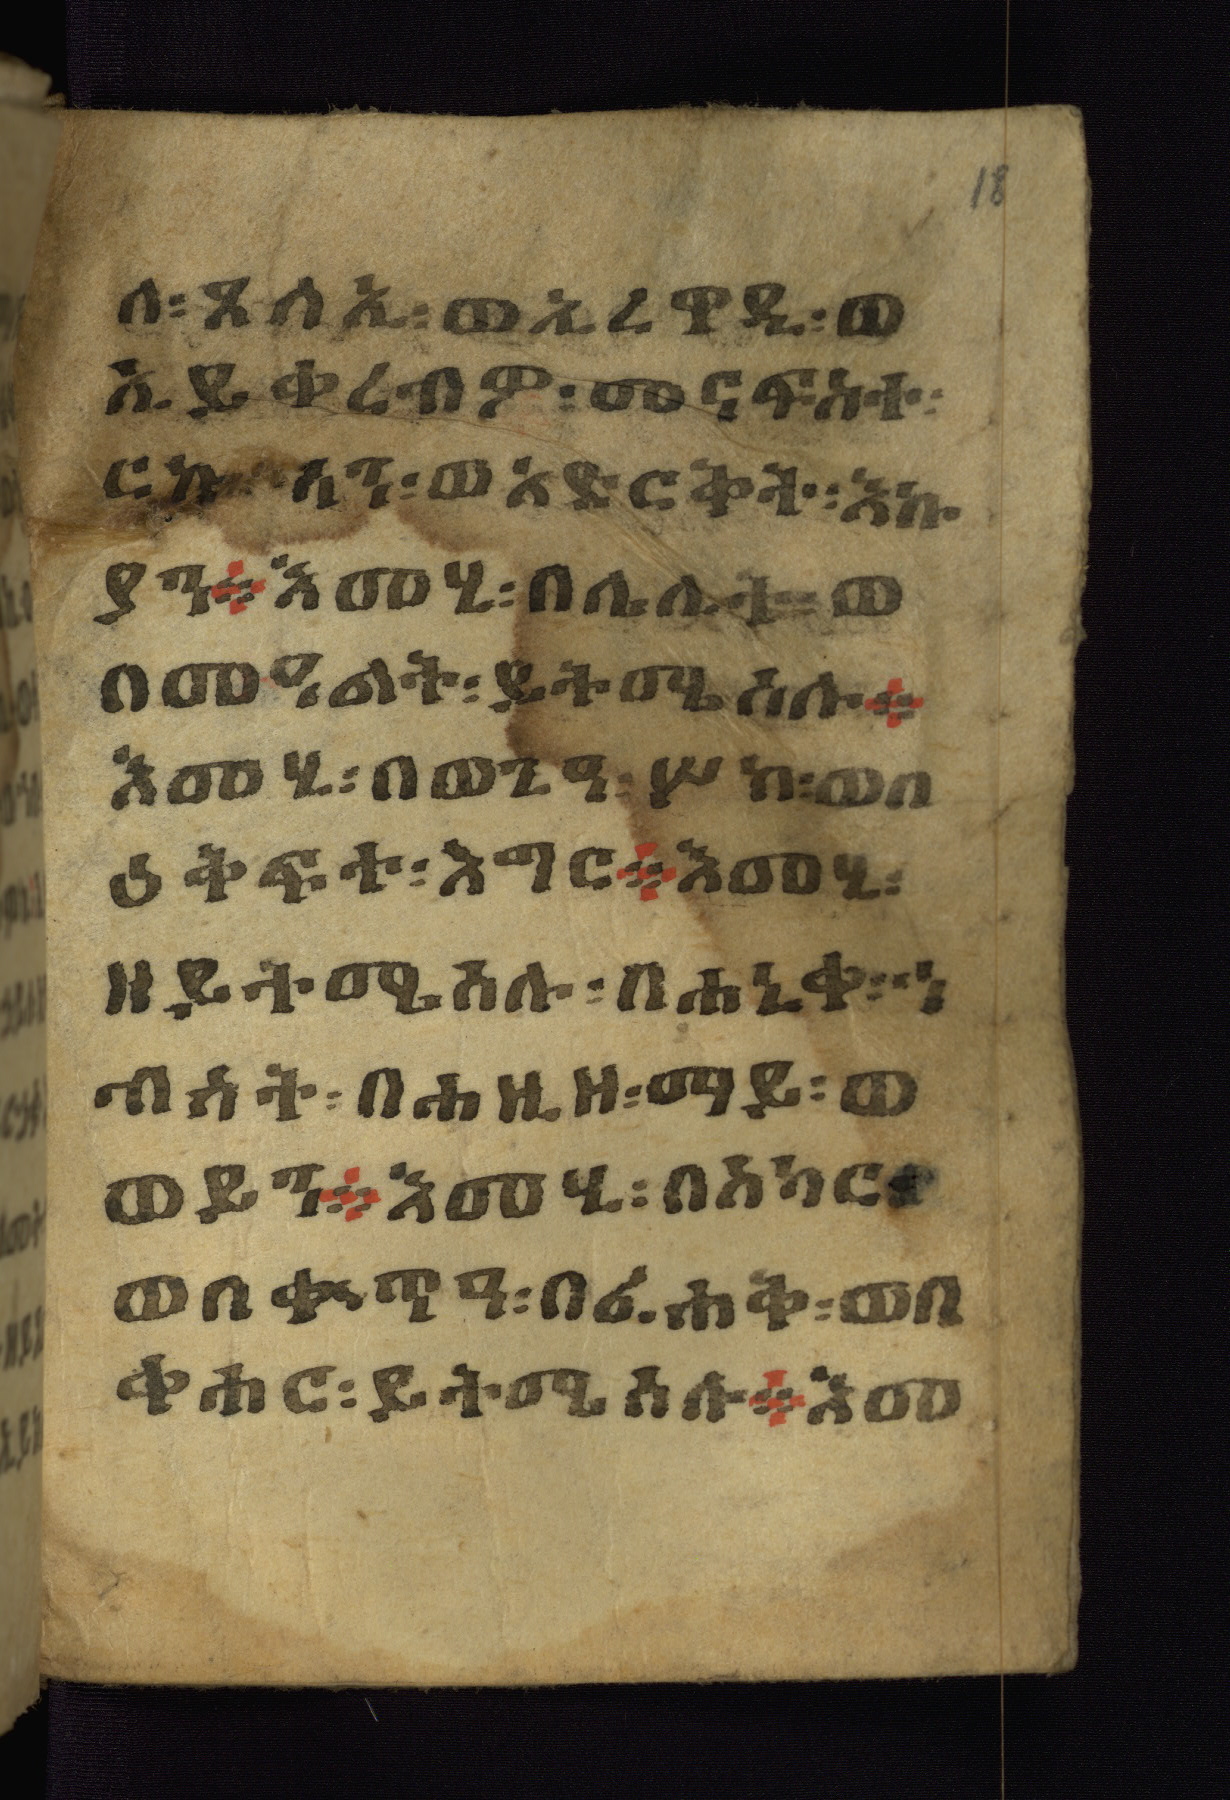 18
ሉ፡ ጸላኢ፡ ወኢረዋዲ፡ ወ
ኢይቀረብዎ፡ መናፍስተ፡
ርኩሳን፡ ወእድርቅት፡ እኩ
ያን፨ እመሂ፡ በሌሊት፡ ወ
በመዓልት፡ ይትሜሰሉ፨
እመሂ፡ በወጊዓ፡ ሦክ፡ ወበ
ዕቅፍተ፡ እግር፨ እመሂ፡
ዘይትሜሰሉ፡ በሐኒቀ፡
ብሳት፡ በሐዚዘ፡ ማይ፡ ወ
ወይን፨ እመሂ፡ በአካር
ወበቍጥዓ፡ በፊሐቅ፡ ወበ
ቀሐር፡ ይትሜሰሉ፨ እመ